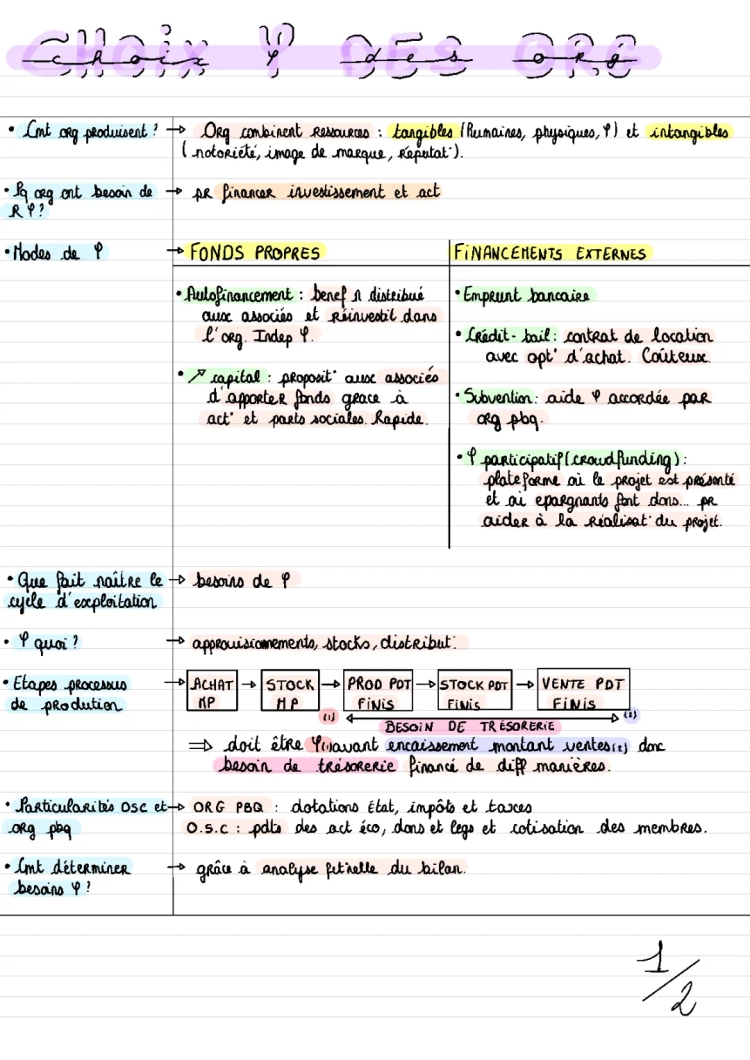 CHOIX φ DES ORG
choix φ des org
• Cmt org produisent ? → Org combinent ressources : tangibles (humaines, physiques, φ) et intangibles
(notoriété, image de marque, réputat°).
• Pq org ont besoin de → pr financer investissement et act
R φ ?
• Modes de φ → FONDS PROPRES
FINANCEMENTS EXTERNES
• Autofinancement : benef n distribué
aux associés et réinvestit dans
l'org. Indep φ.
• ↗ capital : proposit° aux associés
d'apporter fonds grace à
act° et parts sociales. Rapide.
• Emprunt bancaire
• Crédit-bail : contrat de location
avec opt° d'achat. Coûteux.
• Subvention : aide φ accordée par
org pbq.
• φ participatif (crowdfunding) :
plateforme où le projet est présenté
et où epargnants font dons... pr
aider à la réalisat° du projet.
• Que fait naître le → besoins de φ
cycle d'exploitation
• φ quoi ? → approvisionnements, stocks, distribut°.
• Etapes processus → ACHAT MP → STOCK MP → PROD PDT FINIS → STOCK PDT FINIS → VENTE PDT FINIS
de prodution
(1) (2)
BESOIN DE TRÉSORERIE
⇒ doit être φ(1) avant encaissement montant ventes(2) donc
besoin de trésorerie financé de diff manières.
• Particularités OSC et → ORG PBQ : dotations État, impôts et taxes
org pbq O.S.C : pdts des act éco, dons et legs et cotisation des membres.
• Cmt déterminer → grâce à analyse fct°nelle du bilan.
besoins φ ?
1/2